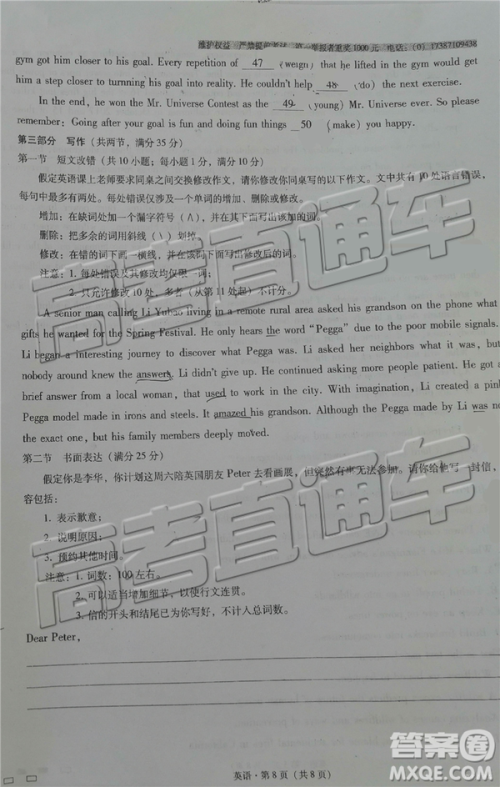 维护权益 严禁提前考试 第一举报者重奖1000元 电话:(0) 13387109438
gym got him closer to his goal. Every repetition of 47 (weign) that he lifted in the gym would get
him a step closer to turnning his goal into reality. He couldn't help 48 (do) the next exercise.
In the end, he won the Mr. Universe Contest as the 49 (young) Mr. Universe ever. So please
remember: Going after your goal is fun and doing fun things 50 (make) you happy.
第三部分 写作(共两节,满分35分)
第一节 短文改错(共10小题;每小题1分,满分10分)
假定英语课上老师要求同桌之间交换修改作文,请你修改你同桌写的以下作文。文中共有10处语言错误,
每句中最多有两处。每处错误仅涉及一个单词的增加、删除或修改。
增加:在缺词处加一个漏字符号(∧),并在其下面写出该加的词。
删除:把多余的词用斜线(\)划掉。
修改:在错的词下画一横线,并在该词下面写出修改后的词。
注意:1. 每处错误及其修改均仅限一词;
2. 只允许修改10处,多者(从第11处起)不计分。
A senior man calling Li Yubao living in a remote rural area asked his grandson on the phone what
gifts he wanted for the Spring Festival. He only hears the word “Pegga” due to the poor mobile signals.
Li began a interesting journey to discover what Pegga was. Li asked her neighbors what it was, but
nobody around knew the answers. Li didn't give up. He continued asking more people patient. He got a
brief answer from a local woman, that used to work in the city. With imagination, Li created a pink
Pegga model made in irons and steels. It amazed his grandson. Although the Pegga made by Li was not
the exact one, but his family members deeply moved.
第二节 书面表达(满分25分)
假定你是李华,你计划这周六陪英国朋友Peter去看画展,但突然有事无法参加。请你给他写一封信,
容包括:
1. 表示歉意;
2. 说明原因;
3. 预约其他时间。
注意:1. 词数:100左右。
2. 可以适当增加细节,以使行文连贯。
3. 信的开头和结尾已为你写好,不计人总词数。
Dear Peter,
英语·第8页(共8页)
高考直通车
高考直通车
答案圈
MXQE.COM